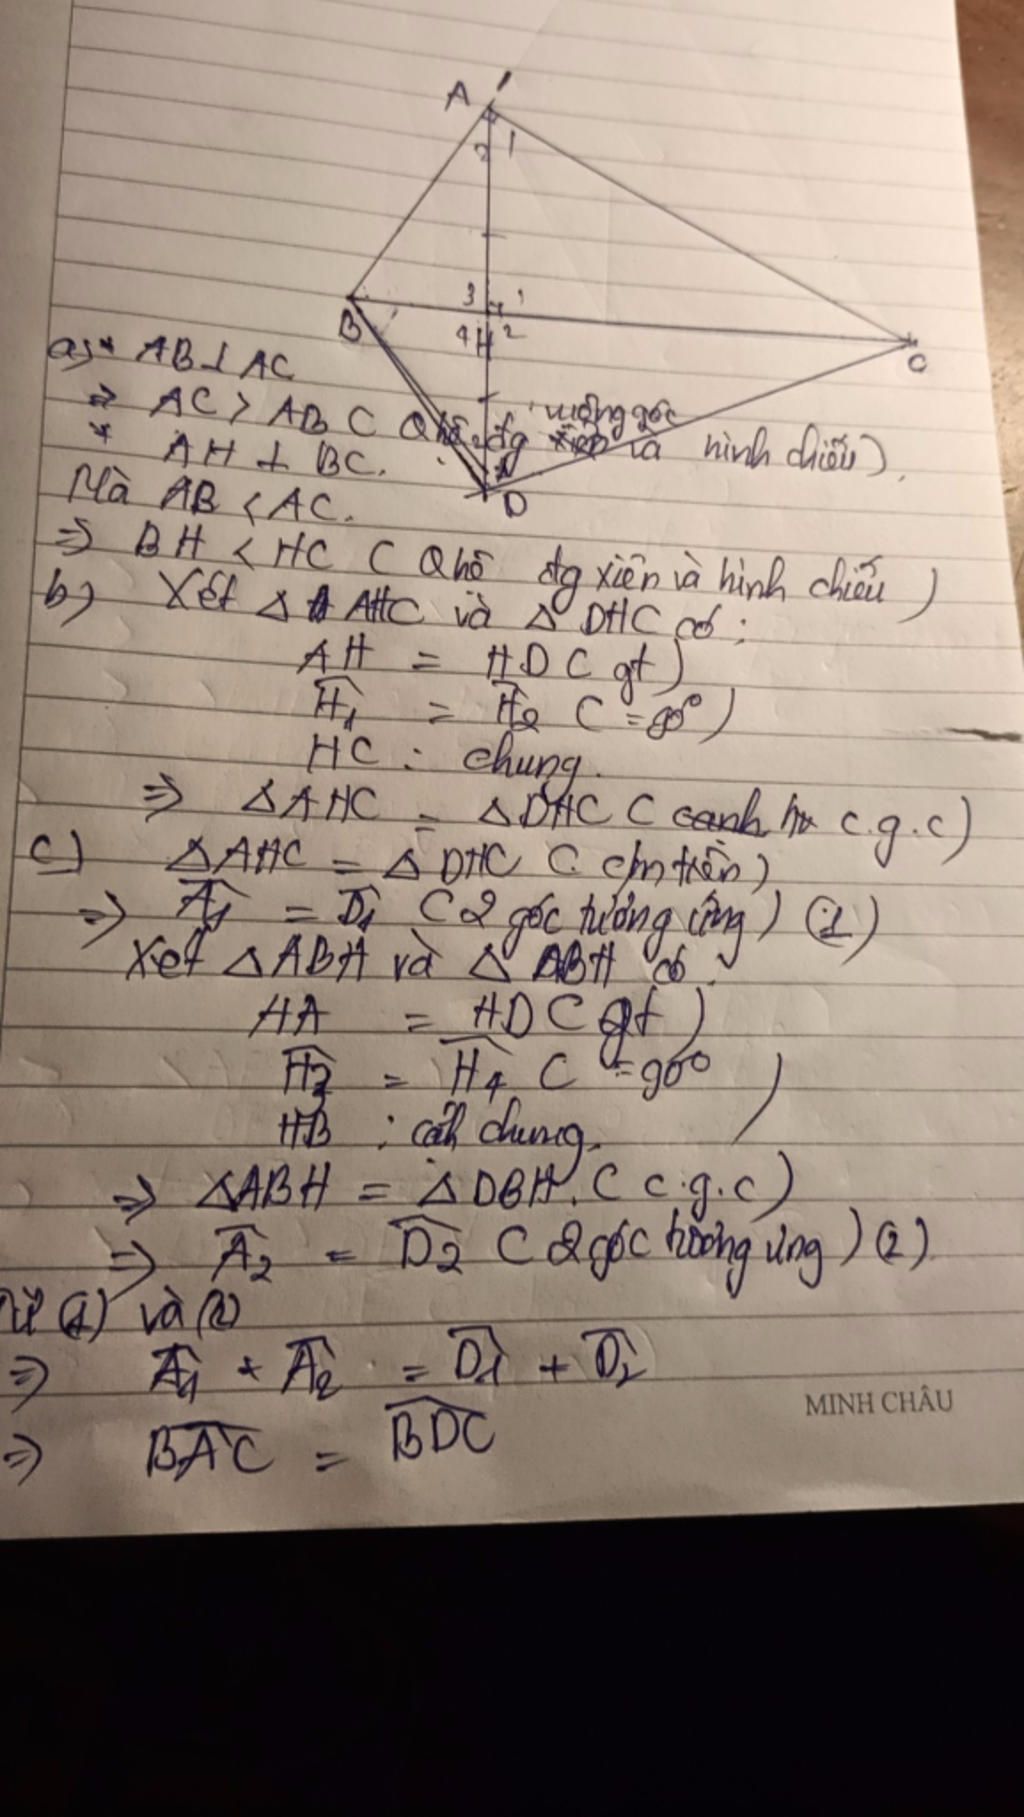 A
2 1
3 1
B 4 H 2
C
D
a) * AB ⊥ AC
⇒ AC > AB ( Qhệ đg vuông góc và hình chiếu).
* AH ⊥ BC.
Mà AB < AC.
⇒ BH < HC ( Qhệ đg xiên và hình chiếu )
b) Xét Δ AHC và Δ DHC có :
AH = HD ( gt )
Ĥ₁ = Ĥ₂ ( = 90° )
HC : chung.
⇒ Δ AHC = Δ DHC ( c.g.c )
c) Δ AHC = Δ DHC ( cm trên )
⇒ Â₁ = D̂₁ ( 2 góc tương ứng ) (1)
Xét Δ ABH và Δ DBH có :
HA = HD ( gt )
Ĥ₃ = Ĥ₄ ( = 90° )
HB : cạh chung.
⇒ Δ ABH = Δ DBH. ( c.g.c )
⇒ Â₂ = D̂₂ ( 2 góc tương ứng ) (2)
Từ (1) và (2)
⇒ Â₁ + Â₂ = D̂₁ + D̂₂
MINH CHÂU
⇒ BÂC = BD̂C